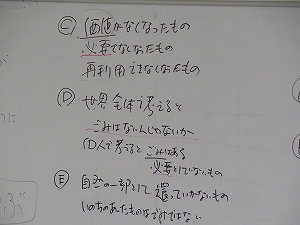 Ⓒ 価値がなくなったもの
必要でなくなったもの
再利用できなくなったもの
Ⓓ 世界全体で考えると
ごみはないんじゃないか
1人で考えると ごみはある
必要としていないもの
Ⓔ 自然の一部として還っていかないもの
いのちのあったものなだけではない